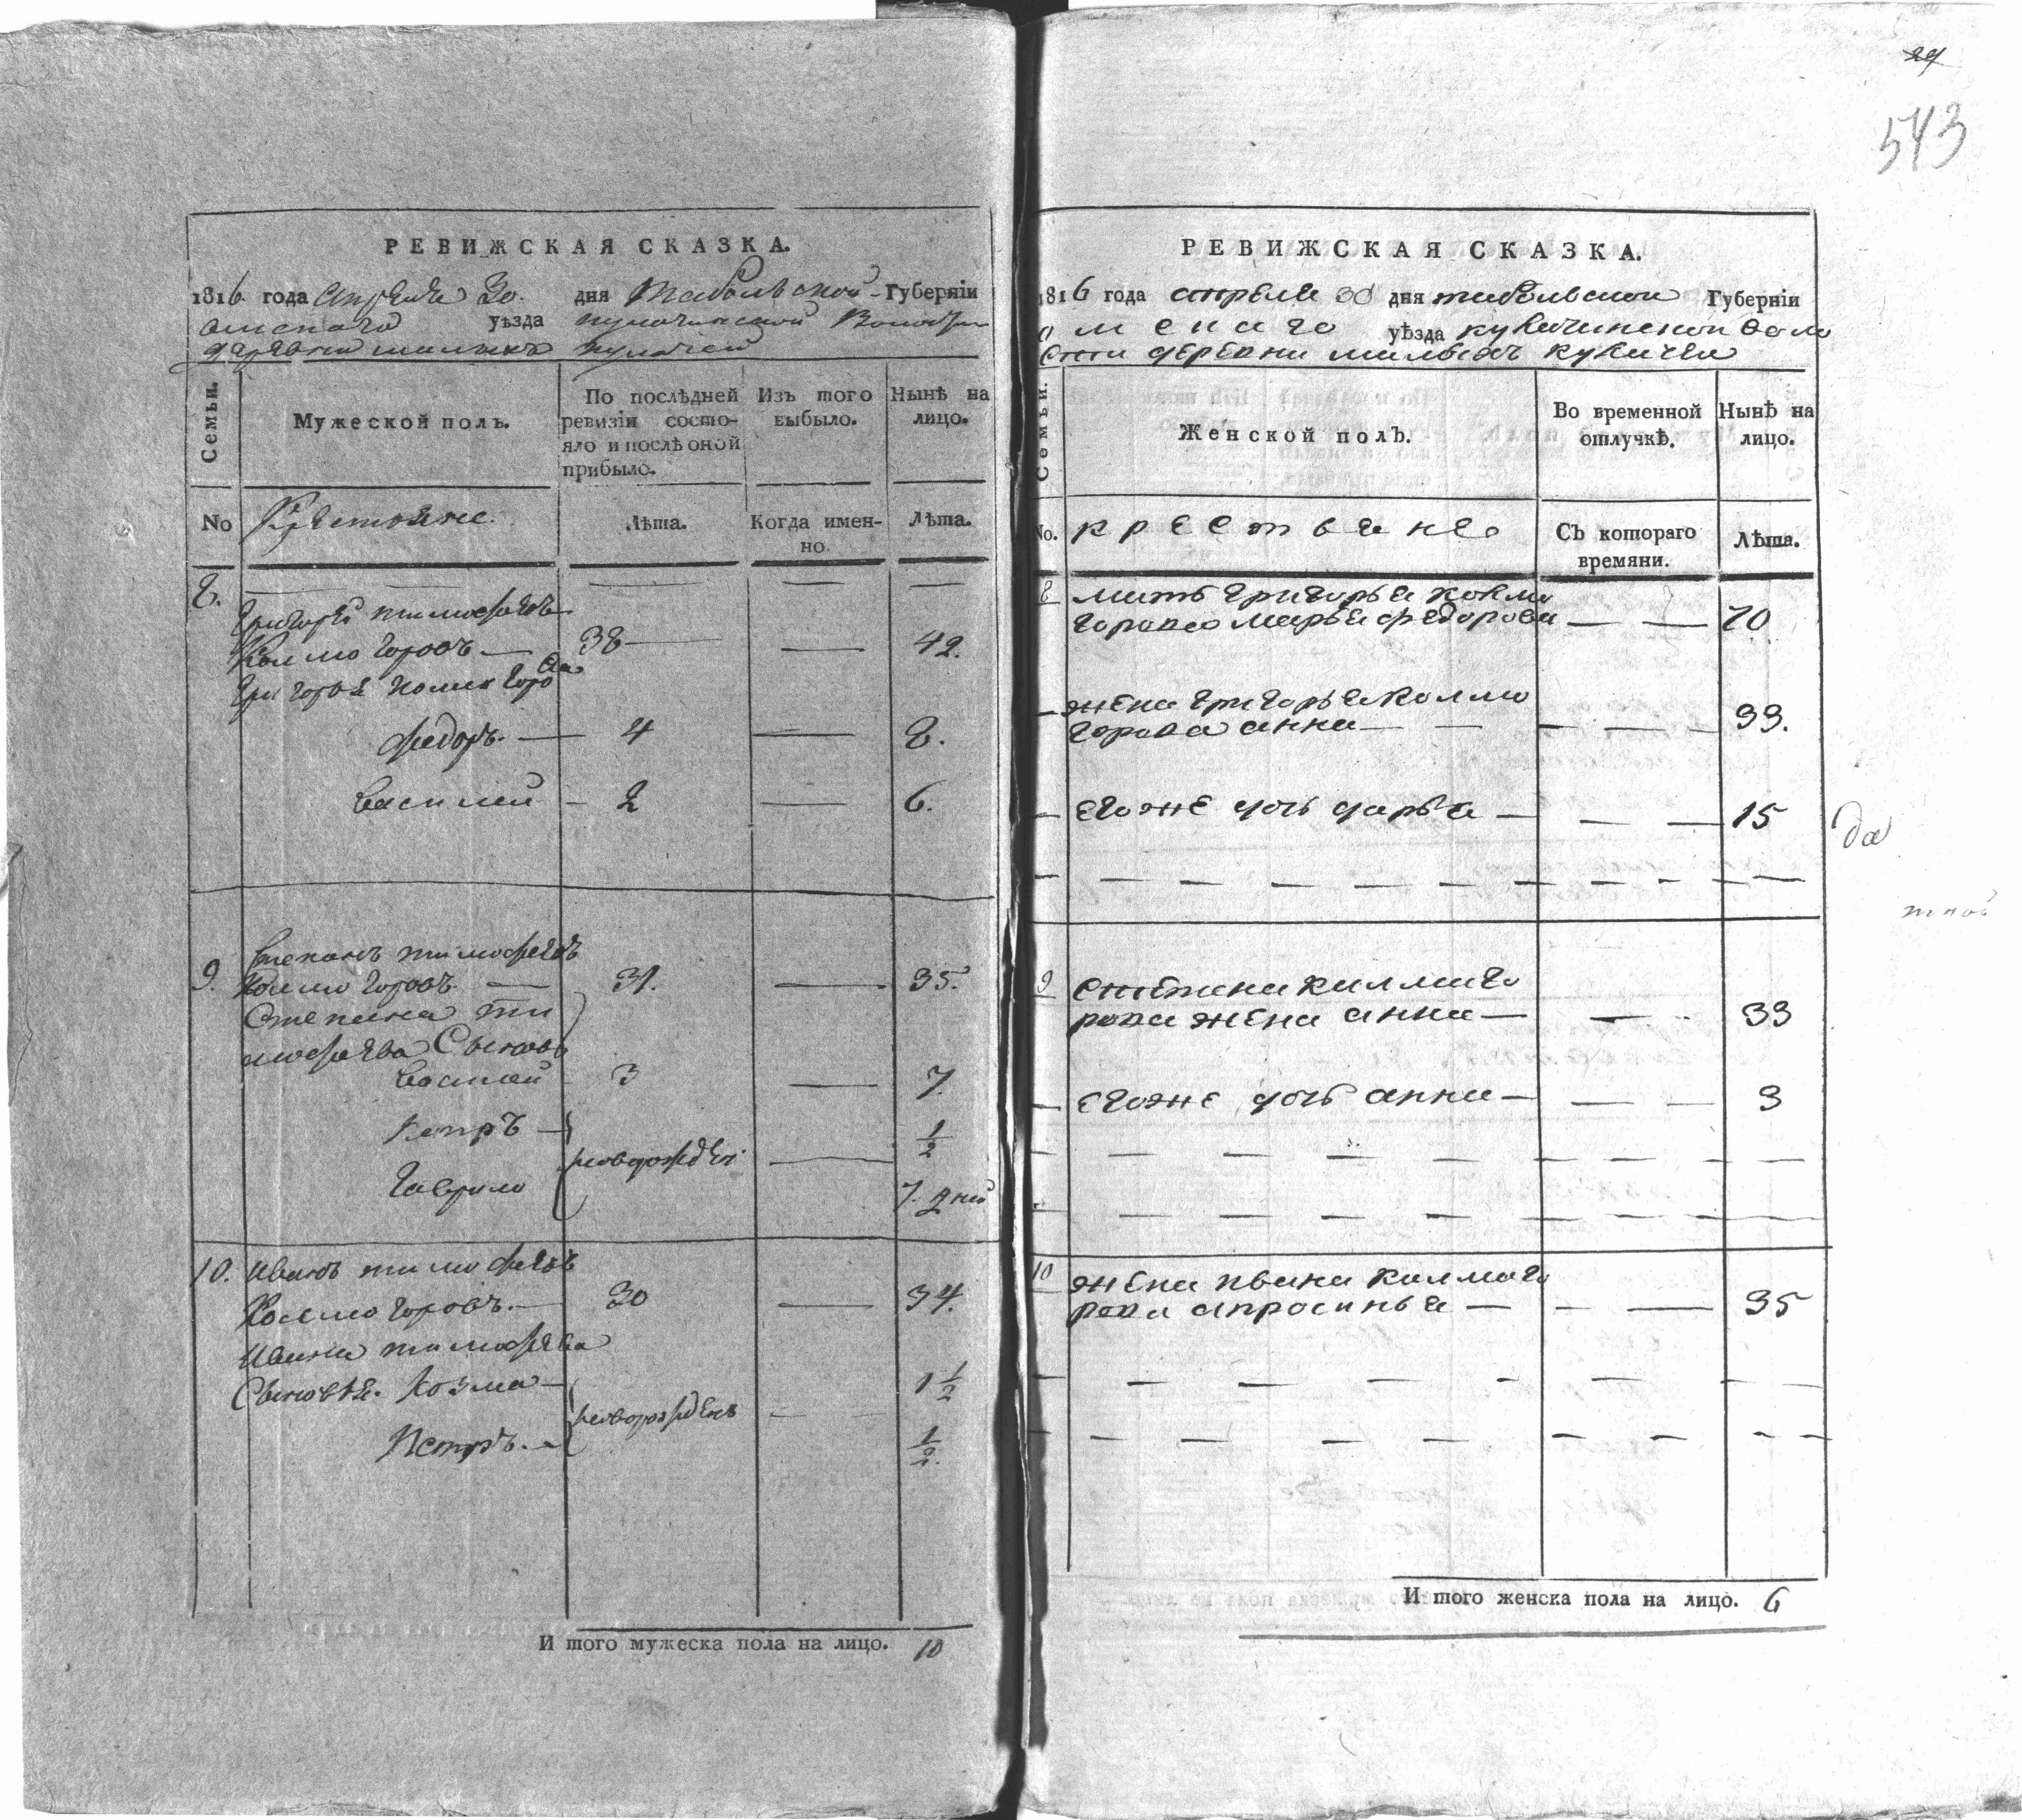 24
543
РЕВИЖСКАЯ СКАЗКА.
1816 года апреля 30. дня Тобольской Губерніи
омскаго уѣзда кулачинской волости
деревни малыхъ кулачей
Семьи.
Мужеской полъ.
По послѣдней ревизіи состо-
яло и послѣ оной
прибыло.
Изъ того
выбыло.
Нынѣ на
лицо.
No
Крестьяне.
Лѣта.
Когда имен-
но.
Лѣта.
8.
Григорей тимофеевъ
Колмогоровъ — 38 — 42.
Григорья колмогорова
Федоръ. — 4 — 8.
Василей — 2 — 6.
Степанъ тимофеевъ
9. Колмогоровъ. — 31. — 35.
Степана ти
мофеева Сыновья
Василей 3 — 7.
Петръ — 1/2
новорожден
Гаврило 7. дней
10. Иванъ тимофеевъ
Колмогоровъ. — 30 — 34.
Ивана тимофеева
Сыновья. Козма — 1 1/2
новорожденъ
Петръ. — 1/2.
И того мужеска пола на лицо. 10
РЕВИЖСКАЯ СКАЗКА.
1816 года апреля 30 дня тобольской Губерніи
омскаго уѣзда кулачинской воло
сти деревни малыхъ кулачеи
Семьи.
Женской полъ.
Во временной
отлучкѣ.
Нынѣ на
лицо.
No.
крестьяне
Съ котораго
времяни.
Лѣта.
8 мать григорья колмо
горова марья федорова — — 70
— жена григорья колмо
горова анна — — — 39.
— егоже дочь дарья — — — 15
да
9 степана калмаго
рова жена анна — — 33
— егоже дочь анна — — — 3
10 жена ивана калмаго
рова апросинья — — — 35
И того женска пола на лицо. 6